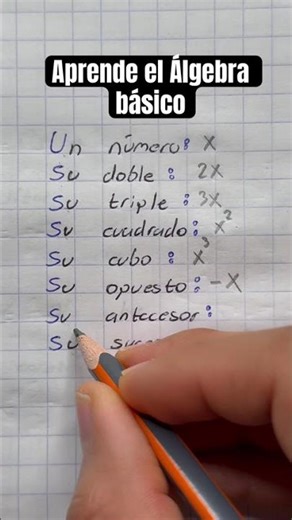 Aprende el Álgebra
básico
Un número: x
Su doble: 2x
Su triple: 3x
Su cuadrado: x²
Su cubo: x³
Su opuesto: -x
Su antecesor:
Su